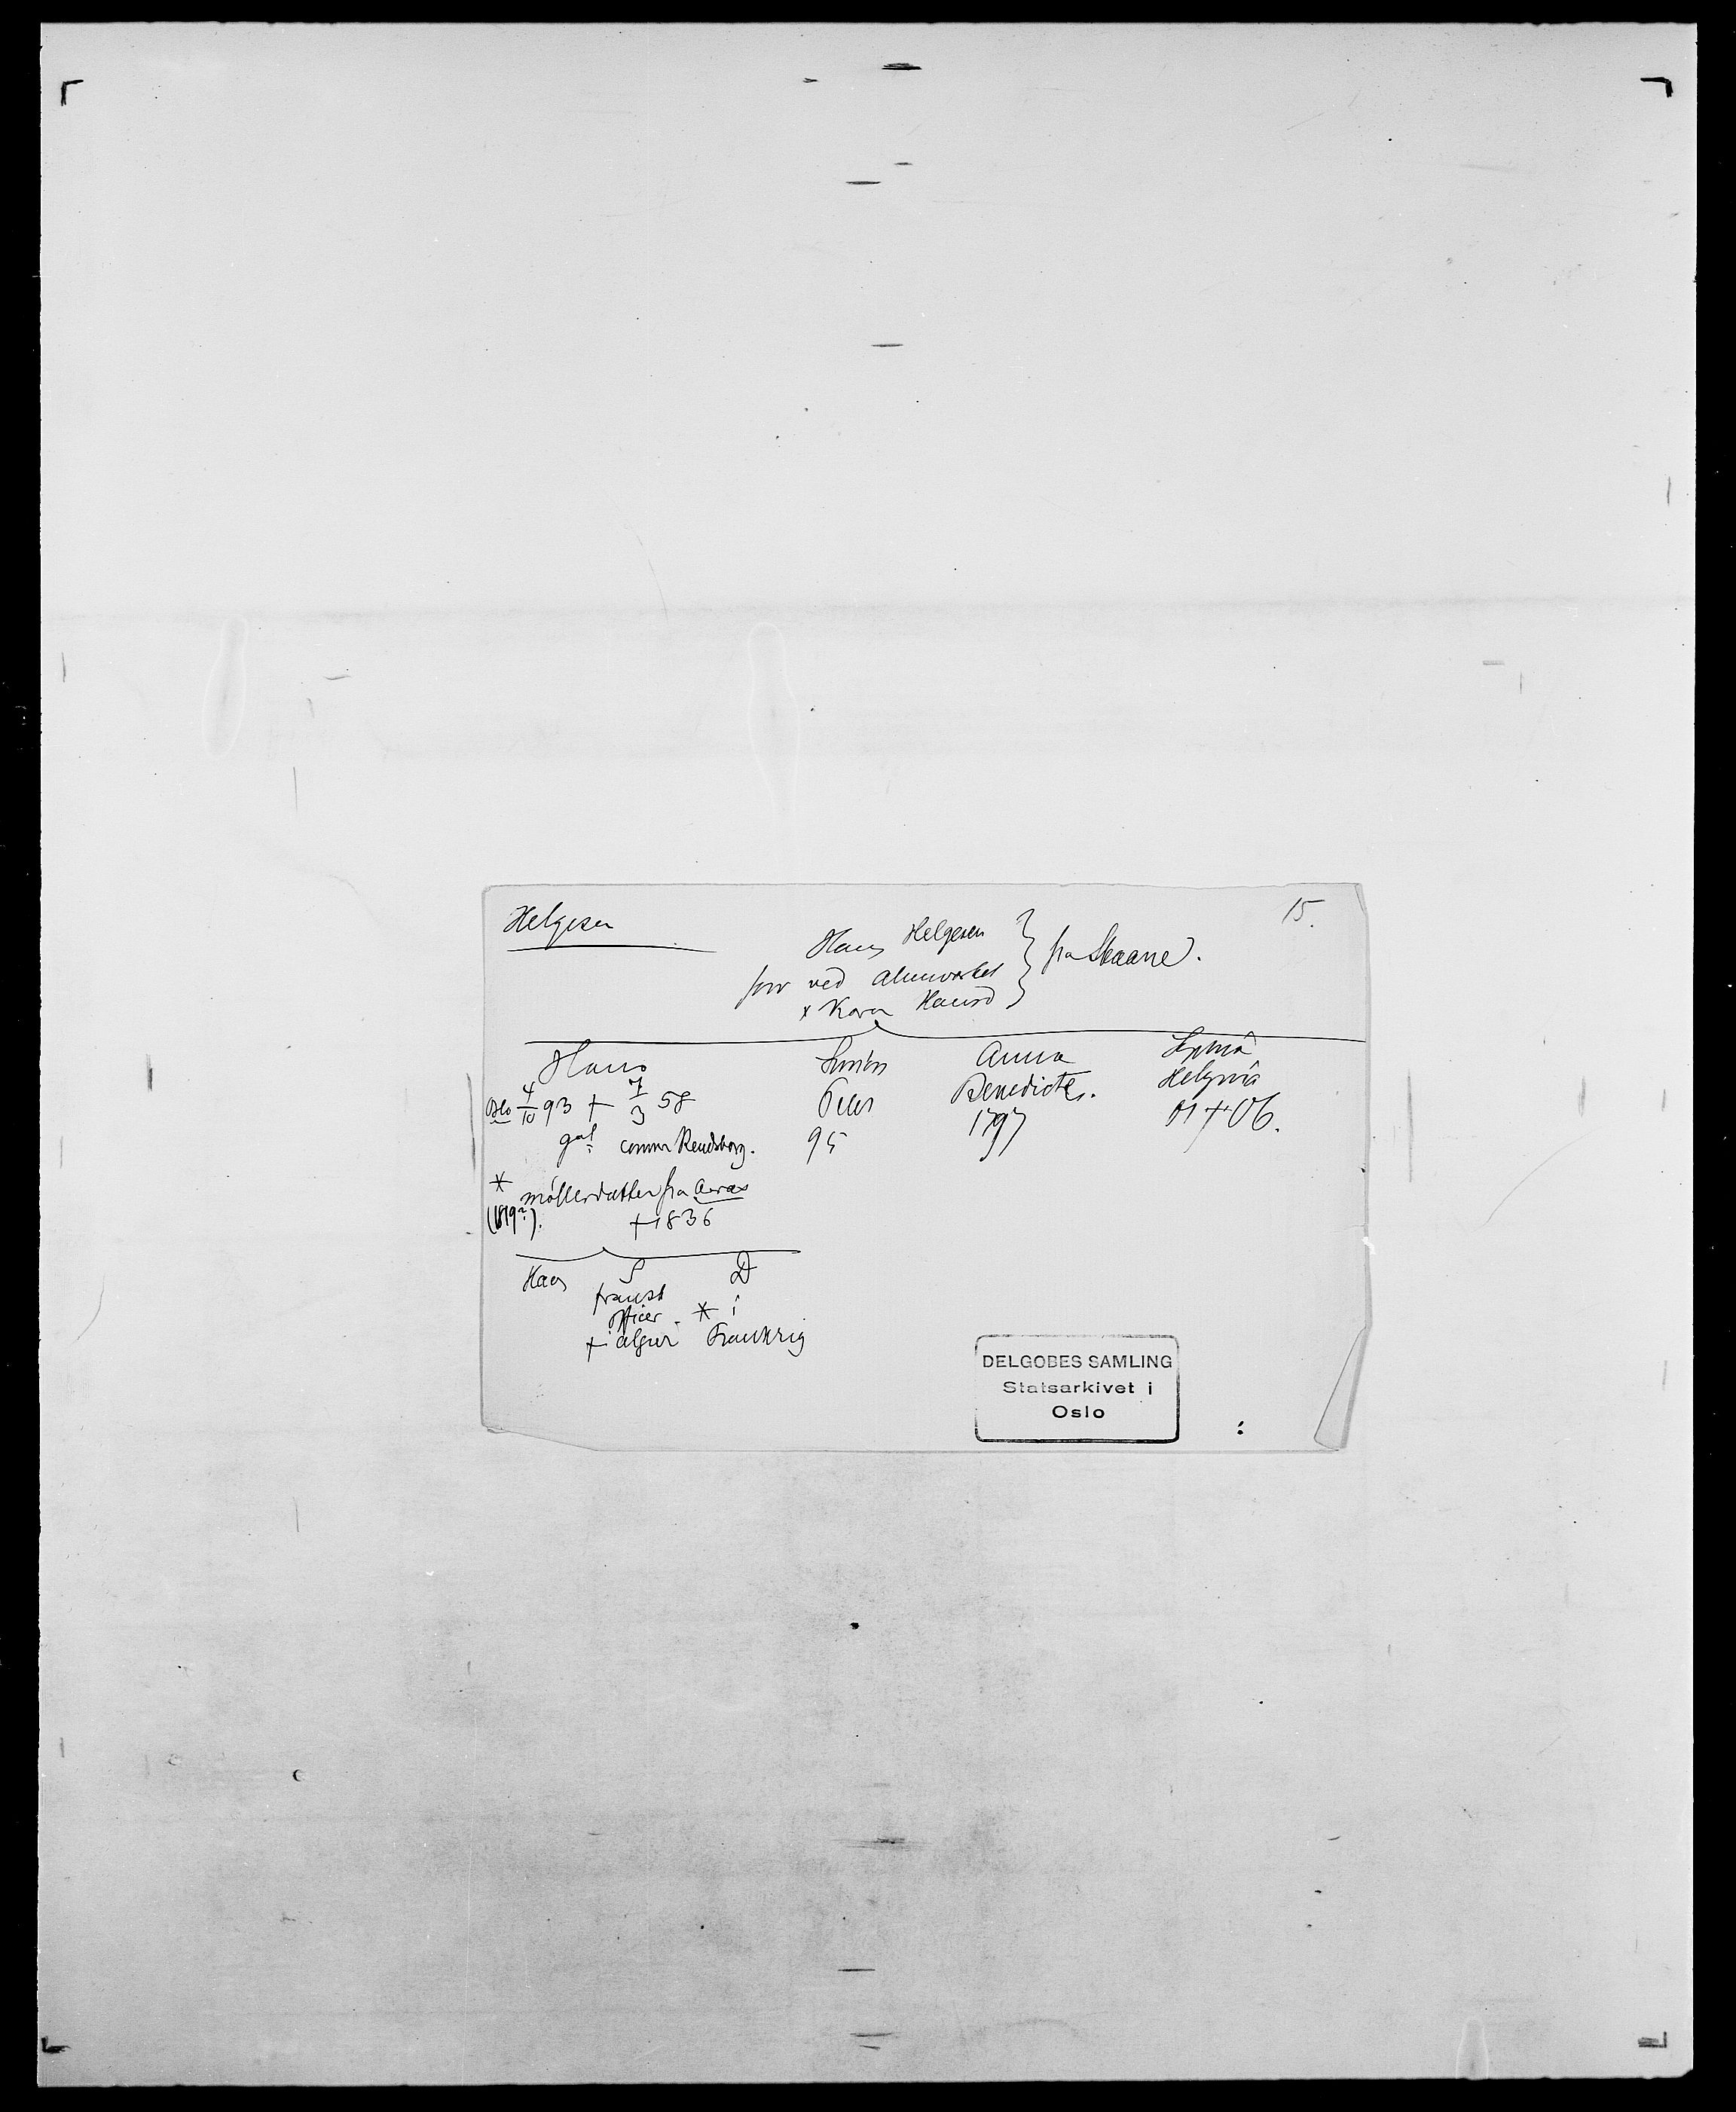 Helgesen
15.
Hans Helgesen
forv ved Alunverket
x Karen Hansd
} fra Skaane.
Hans
Oslo 4/10 93 † 7/3 58
gal: comm Rendsborg.
Simon
Peter
95
Anna
Benedicte.
1797
Helgine
01 † 06.
*
møllerdatter fra Arras
(1819?).
† 1836
Hans
S
fransk
officer.
† i Algier
D
* i
Frankrig
DELGOBES SAMLING
Statsarkivet i
Oslo